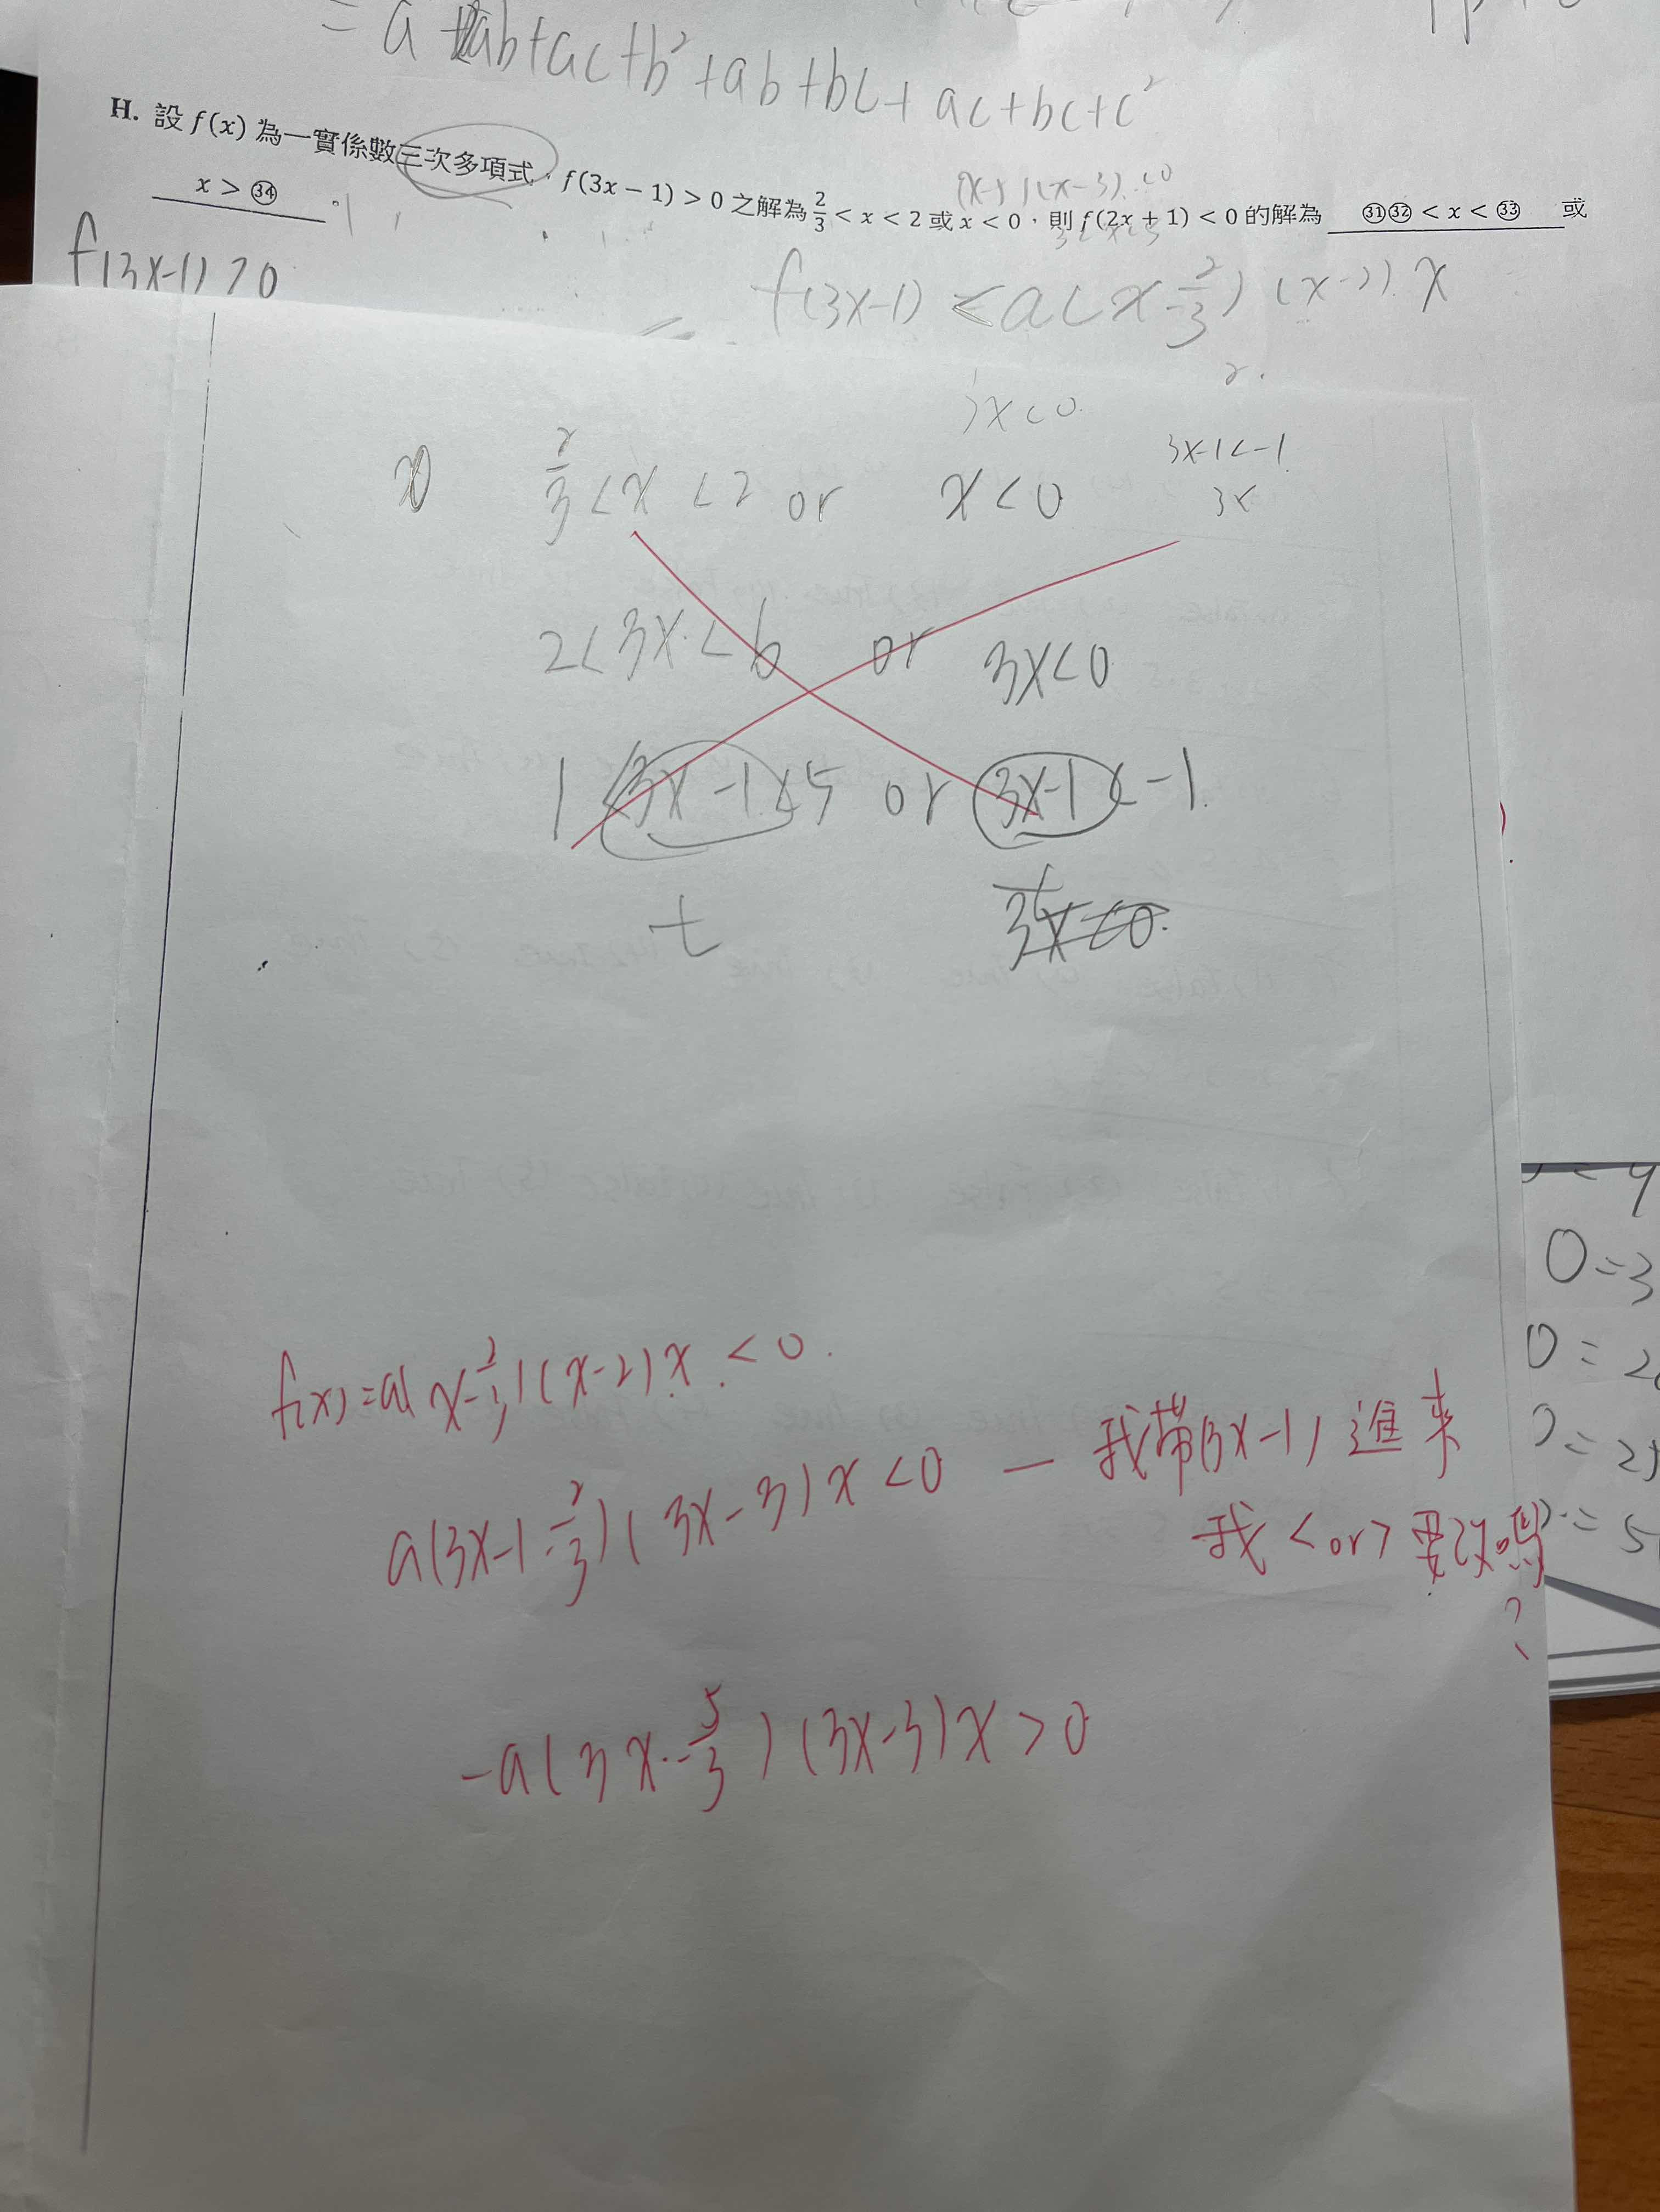 = a² + ab + ac + b² + ab + bc + ac + bc + c²
H. 設 f(x) 為一實係數三次多項式,f(3x − 1) > 0 之解為 2/3 < x < 2 或 x < 0,則 f(2x + 1) < 0 的解為 ㉛㉜ < x < ㉝ 或
x > ㉞ 。
f(3x-1) > 0
f(3x-1) < a(x-2/3)(x-2) x
3x<0
2/3 < x < 2 or x < 0
3x-1<-1
3x
2 < 3x < 6 or 3x < 0
1 < 3x-1 < 5 or 3x-1 < -1
t
3x<0.
f(x) = a(x-2/3)(x-2)x < 0.
a(3x-1-2/3)(3x-3)x < 0 — 我帶(3x-1)進來
我 < or > 要改嗎
?
-a(3x-5/3)(3x-3)x > 0
0=3
0=2
=2
=5